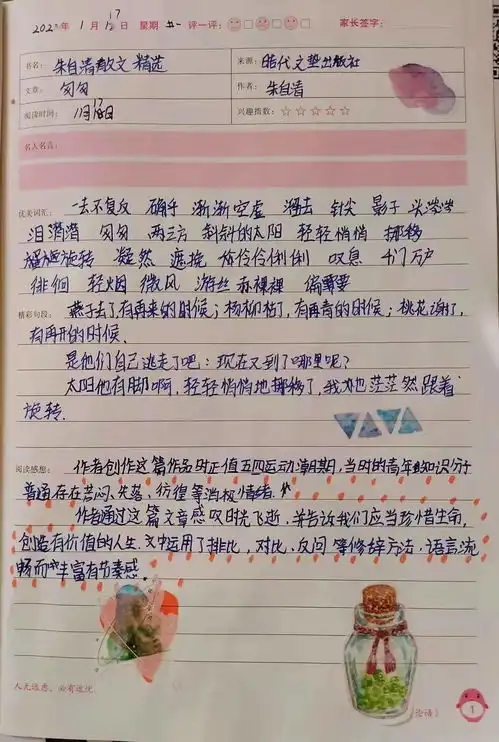 2023年 1月 17日 星期 二 评一评: 家长签字:
书名: 朱自清散文精选 来源: 时代文艺出版社
文章: 匆匆 作者: 朱自清
阅读时间: 1月17日 兴趣指数: ☆☆☆☆☆
名人名言:
优美词汇: 一去不复返 确乎 渐渐空虚 溜去 针尖 影子 头涔涔
泪潸潸 匆匆 两三方 斜斜的太阳 轻轻悄悄 挪移
旋转 凝然 遮挽 伶伶俐俐 叹息 千门万户
徘徊 轻烟 微风 游丝 赤裸裸 偏要
精彩句段: 燕子去了,有再来的时候;杨柳枯了,有再青的时候;桃花谢了,
有再开的时候.
是他们自己逃走了吧:现在又到了哪里呢?
太阳他有脚啊,轻轻悄悄地挪移了,我也茫茫然跟着
旋转.
阅读感想: 作者创作这篇作品时正值五四运动潮期,当时的青年知识分子
普通存在苦闷、失落、彷徨等消极情绪.
作者通过这篇文章感叹时光飞逝.并告诉我们应当珍惜生命,
创造有价值的人生.文中运用了排比,对比.反问等修辞方法.语言流
畅而丰富有节奏感.
人无远虑,必有近忧.
《论语》
1